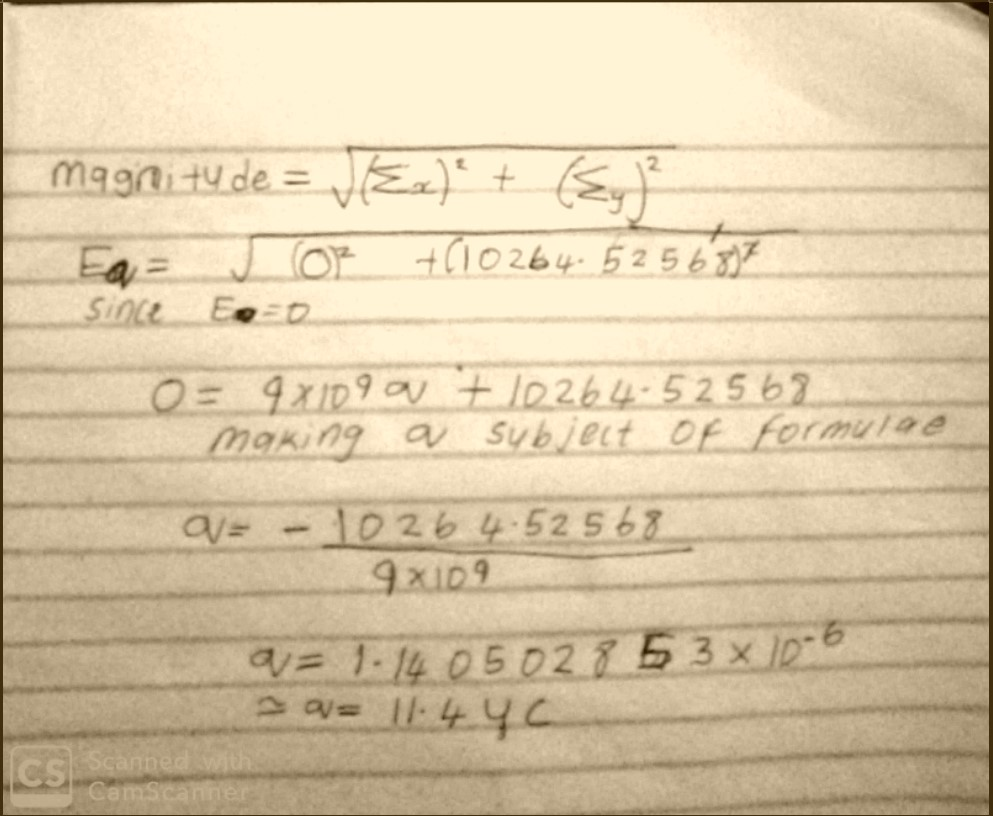 Magnitude = √(Σx)² + (Σy)²
EQ = √(0)² + (10264.52568)²
since EQ=0
0 = 9x10⁹ Q + 10264.52568
making Q subject of formulae
Q = - 10264.52568
9x10⁹
Q = 1.1405028 53 x 10⁻⁶
≃ Q = 11.4 μC
CS Scanned with
CamScanner